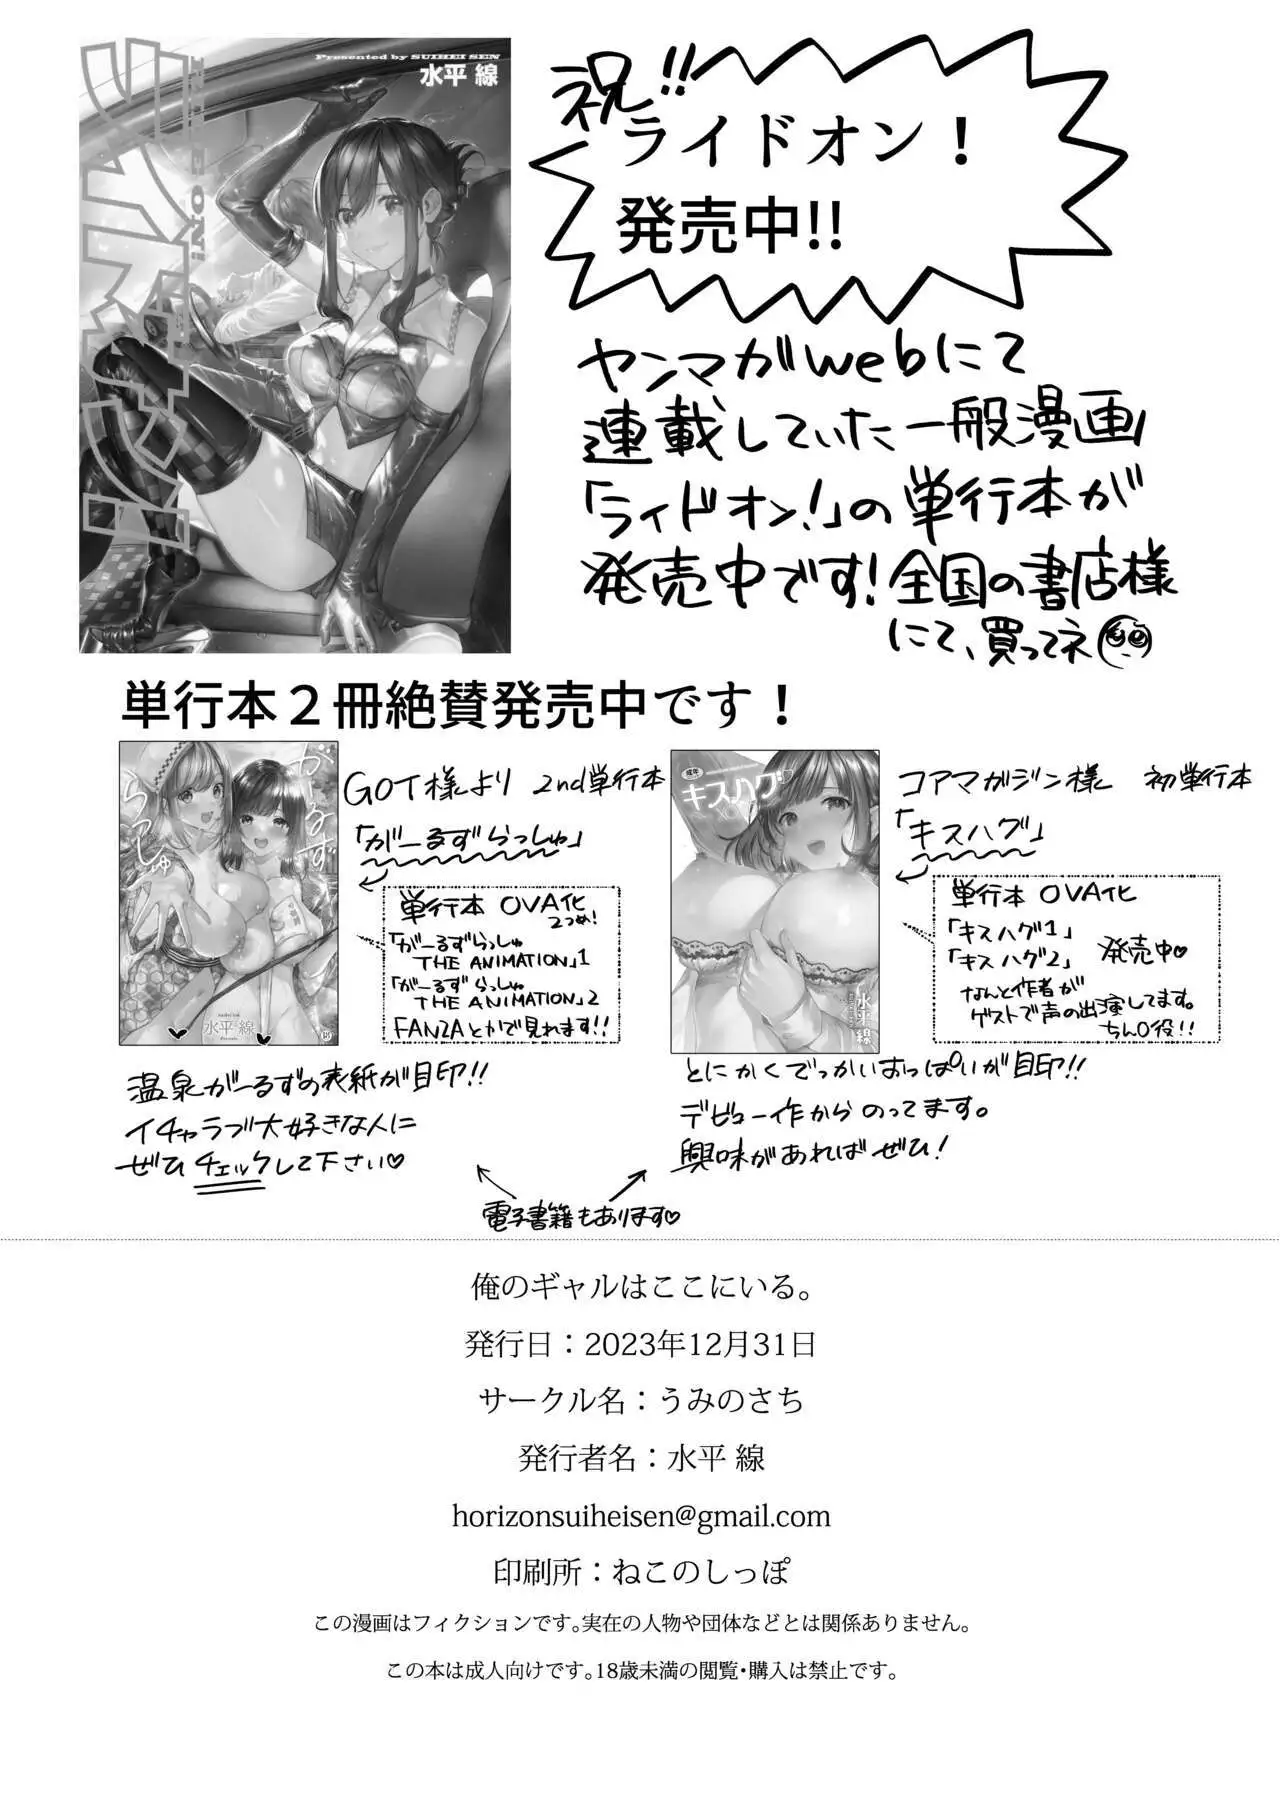 Presented by SUIHEI SEN
水平 線
ライドオン!
RIDE ON!
祝!!
ライドオン！
発売中!!
ヤンマガwebにて
連載していた一般漫画
「ライドオン!」の単行本が
発売中です!全国の書店様
にて、買ってネ
単行本２冊絶賛発売中です！
がーるず
らっしゅ
水平 線
GOT様より 2nd単行本
「がーるずらっしゅ」
単行本 OVA化
2つめ!
「がーるずらっしゅ
THE ANIMATION」1
「がーるずらっしゅ
THE ANIMATION」2
FANZAとかで見れます!!
温泉がーるずの表紙が目印!!
イチャラブ大好きな人に
ぜひチェックして下さい♡
成年
キスハグ
水平線
コアマガジン様 初単行本
「キスハグ」
単行本 OVA化
「キスハグ1」
「キスハグ2」 発売中♡
なんと作者が
ゲストで声の出演してます。
ちん〇役!!
とにかくでっかいおっぱいが目印!!
デビュー作からのってます。
興味があればぜひ!
電子書籍もあります♡
俺のギャルはここにいる。
発行日：2023年12月31日
サークル名：うみのさち
発行者名：水平 線
horizonsuiheisen@gmail.com
印刷所：ねこのしっぽ
この漫画はフィクションです。実在の人物や団体などとは関係ありません。
この本は成人向けです。18歳未満の閲覧・購入は禁止です。